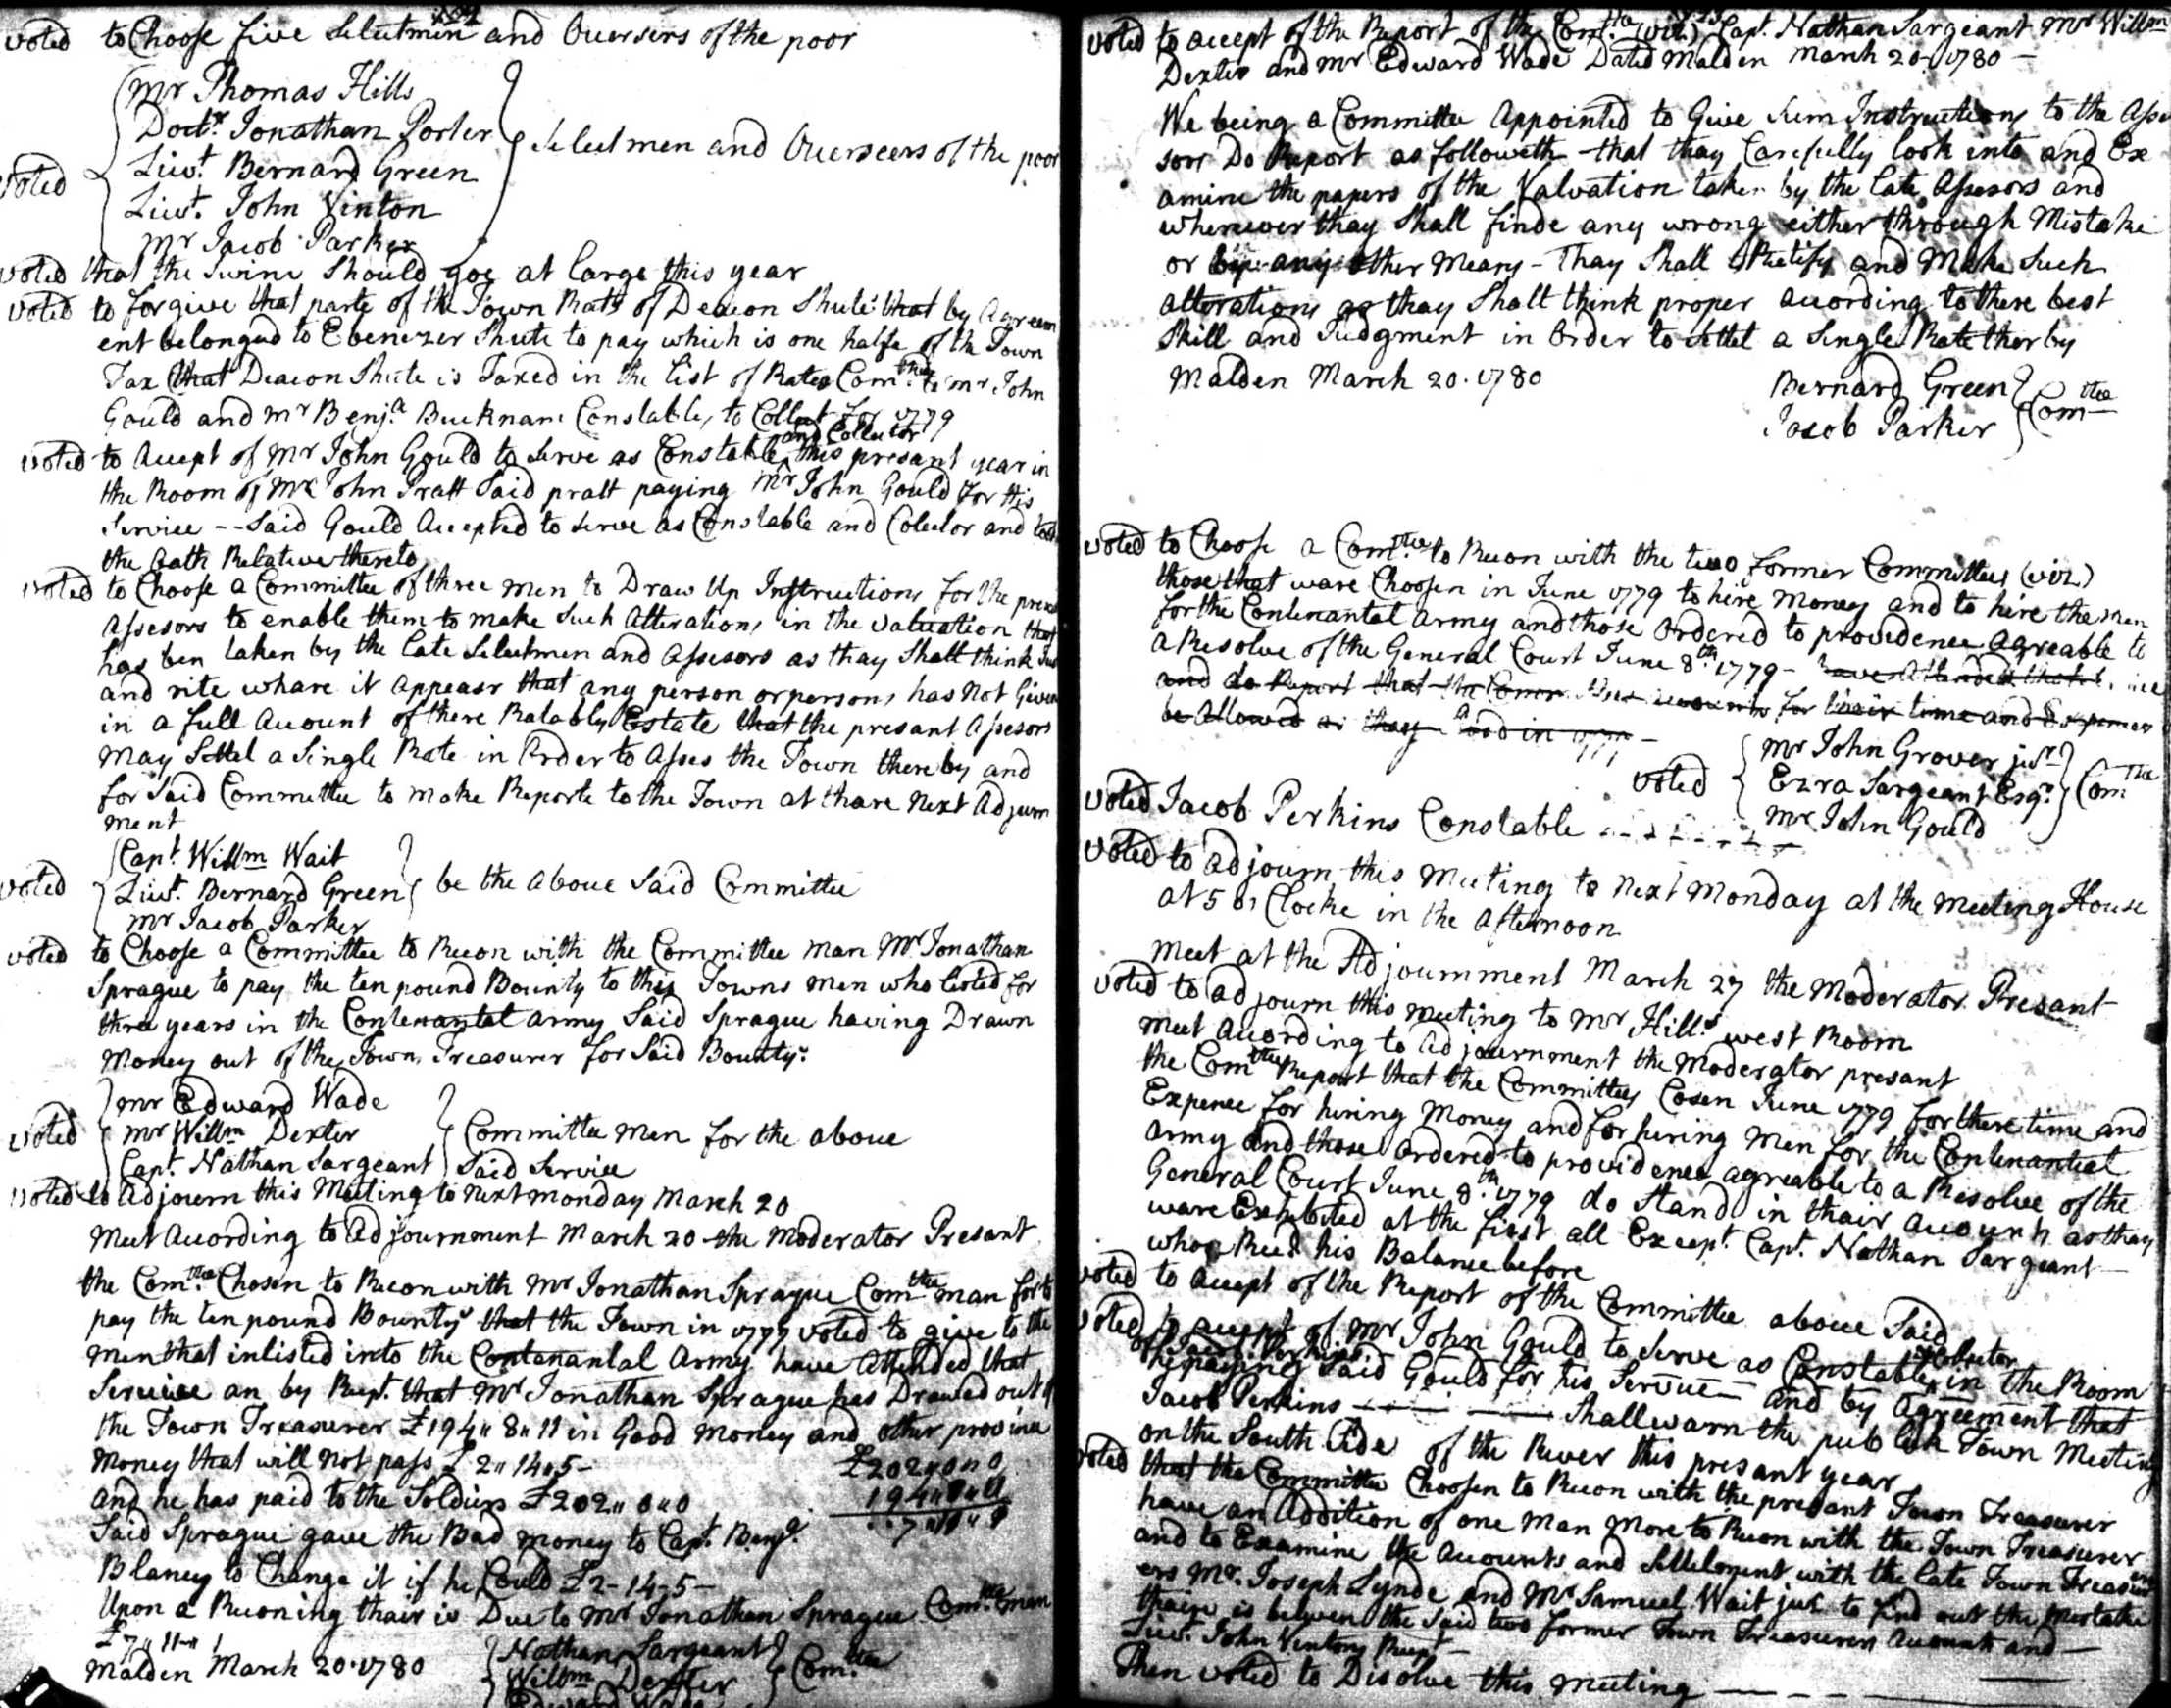 voted to Choose five Selectmen and Overseers of the poor
Mr Thomas Hills
Doctr. Jonathan Porter
voted Liut. Bernard Green Selectmen and Overseers of the poor
Liut. John Vinton
Mr Jacob Parker
voted that the Swine Should goe at large this year
voted to forgive that parte of the Town Rats of Deacon Shute that by Agreem
ent belonged to Ebenezer Shute to pay which is one halfe of the Town
Tax that Deacon Shute is Taxed in the List of Rates Comtted to mr John
Gould and mr Benja. Bucknam Constables to Collect for 1779
and Collector
voted to Accept of Mr John Gould to Serve as Constable this presant year in
the Room of Mr John Pratt Said pratt paying Mr John Gould for His
Service -- Said Gould Accepted to Serve as Constable and Colector and took
the Oath Relative thereto
voted to Choose a Committee of three men to Draw Up Instructions for the presant
Assesors to enable them to make Such Alterations in the valuation that
has ben taken by the Late Selectmen and Assesors as thay Shall think Just
and rite whare it Appears that any person or persons has Not Given
in a full Account of there Ratable Estate that the presant Assesors
May Settel a Single Rate in Order to Asses the Town thereby and
for Said Committee to make Reporte to the Town at thare Next Adjurn
ment
Capt. Willm Wait
voted Liut. Bernard Green be the Above Said Committee
Mr Jacob Parker
voted to Choose a Committee to Recon with the Committee man Mr. Jonathan
Sprague to pay the ten pound Bounty to this Towns men who listed for
three years in the Contenantal army Said Sprague having Drawn
Money out of the Town Treasurer for Said Bounty:
mr Edward Wade
voted mr Willm Dexter Committee men for the above
Capt. Nathan Sargeant Said Service
voted to Adjourn this Meeting to Next monday March 20
Meet According to Adjournment March 20 the Moderator Presant
the Comttee Chosen to Recon with Mr Jonathan Sprague Comttee man for to
pay the ten pound Bountys that the Town in 1777 voted to give to the
Men that inlisted into the Contenantal Army have Attended that
Service an by Rept. that Mr Jonathan Sprague has Drawed out of
the Town Treasurer £194" 8" 11 in Good Money and other province
Money that will Not pass £ 2" 14" 5 - £202" 0" 0
and he has paid to the Soldiers £202" 0" 0 194" 8" 11
Said Sprague gave the Bad money to Capt. Benja. 7" 11" 1
Blaney to Change it if he Could £2-14-5-
Upon a Reconing thair is Due to Mr Jonathan Sprague Comttee man
£7" 11" 1 Nathan Sargeant
Malden March 20. 1780 Willm Dexter Comttee
Edward Wade
voted to accept of the Report of the Comttee (viz) Capt. Nathan Sargeant Mr Willm
Dexter and mr Edward Wade Dated Malden March 20 1780 -
We being a Committee Appointed to Give Sum Instructions to the Asse
sors Do Report as followeth that thay Carefully look into and Ex
amine the papers of the Valvation taken by the Late Assesors and
wherever thay Shall finde any wrong either through Mistake
or by any other Means - Thay Shall Retify and Make Such
alterations as thay Shall think proper According to there best
Skill and Judgment in Order to Settel a Single Rate therby
Malden March 20. 1780 Bernard Green
Jacob Parker Comttee
voted to Choose a Comttee to Recon with the two former Committees (viz)
those that ware Choosen in June 1779 to hire Money and to hire the men
for the Contenantal Army and those ordered to providence agreable to
a Resolve of the General Court June 8th 1779 - have Attended that
and do Report that the Comttee accounts for their time and Expences
be Allowed as thay Stood in 1779 -
mr John Grover junr
voted Ezra Sargeant Esqr. Comttee
mr John Gould
voted Jacob Perkins Constable
voted to adjourn this Meeting to Next Monday at the Meeting House
at 5 o, Clocke in the Afternoon
Meet at the Adjournment March 27 the Moderator Presant
voted to adjourn this meeting to Mr Hills west Room
Meet According to Adjournment the Moderator presant
the Comttee Report that the Committees Cosen June 1779 for there time and
Expence for hiring Money and for hiring Men for the Contenantal
Army and those ordered to providence agreable to a Resolve of the
General Court June 8th 1779 do Stand in thair Accounts as thay
ware Exhibited at the first all Except Capt. Nathan Sargeant
who Recd his Balance before
voted to Accept of the Report of the Committee above Said
voted to accept of Mr John Gould to Serve as Constable in the Room
Colector
of Said Perkins
he paying Said Gould for his Service and by Agreement that
Jacob Perkins Shall warn the publick Town Meeting
on the South Side of the River this presant year
voted that the Committee Choosen to Recon with the presant Town Treasurer
have an Addition of one Man More to Recon with the Town Treasurer
and to Examine the Accounts and Settelment with the late Town Treasur
ers Mr. Joseph Lynde and Mr Samuel Wait junr to find out the Mistake
thaire is between the Said two former Town Treasurers Accounts and
Liut. John Vintons Recpt -
Then voted to Disolve this meeting